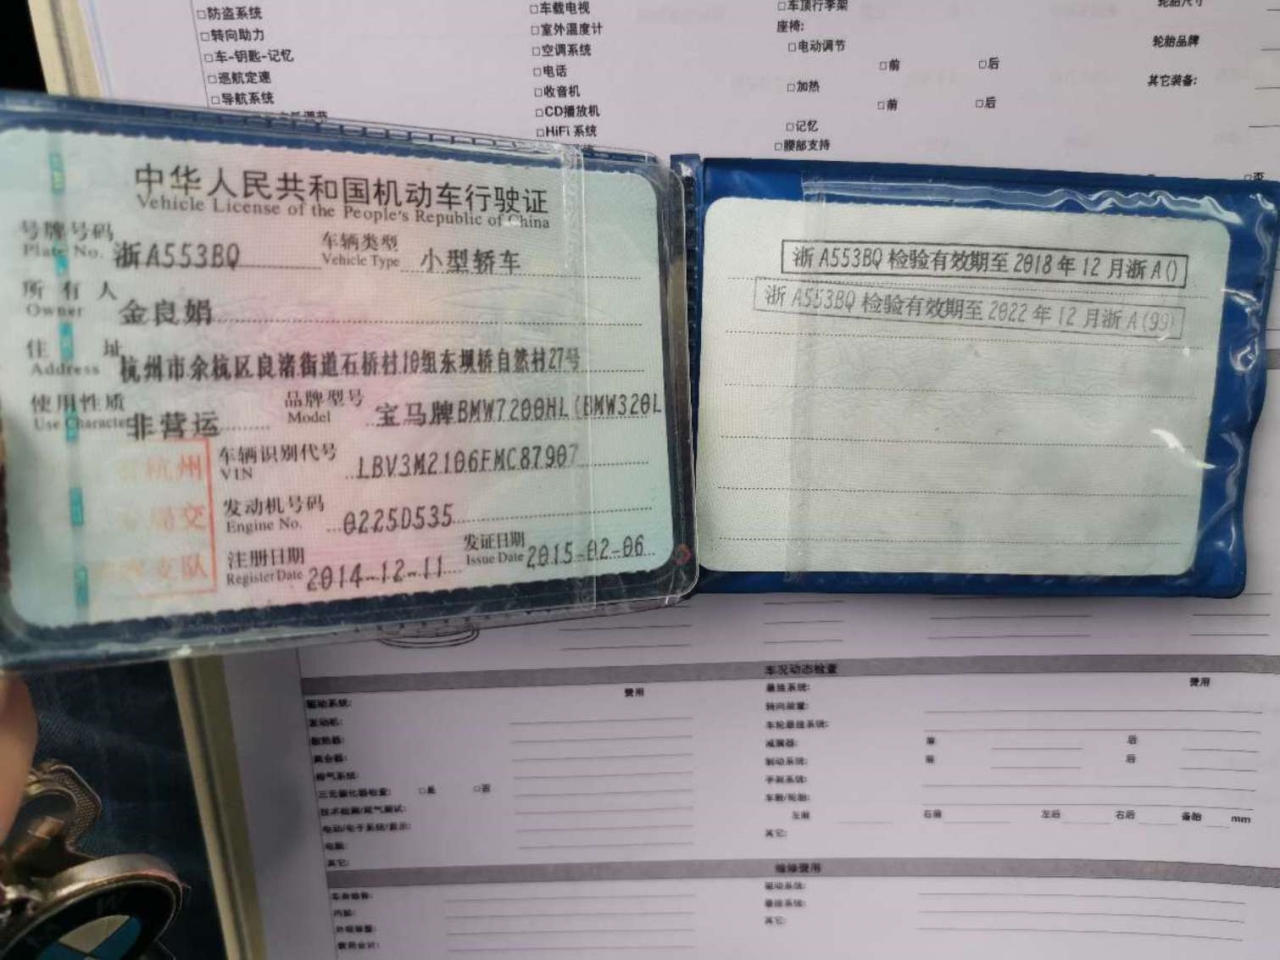 □防盗系统
□转向助力
□车-钥匙-记忆
□巡航定速
□导航系统
□车载电视
□室外温度计
□空调系统
□电话
□收音机
□CD播放机
□HiFi 系统
□车顶行李架
座椅:
□电动调节
□前 □后
□加热
□前 □后
□记忆
□腰部支持
轮胎尺寸
轮胎品牌
其它装备:
□否
中华人民共和国机动车行驶证
Vehicle License of the People's Republic of China
号牌号码 浙A553BQ 车辆类型 小型轿车
Plate No. Vehicle Type
所有人 金良娟
Owner
住址 杭州市余杭区良渚街道石桥村10组东坝桥自然村27号
Address
使用性质 非营运 品牌型号 宝马牌BMW7200HL(BMW320L
Use Character Model
车辆识别代号 LBV3M2106FMC87907
VIN
发动机号码 0225D535
Engine No.
注册日期 2014-12-11 发证日期 2015-02-06
Register Date Issue Date
杭州
交
支队
浙A553BQ检验有效期至2018年12月浙A()
浙A553BQ检验有效期至2022年12月浙A(99)
车况动态检查
费用 费用
驱动系统:
发动机:
散热器:
离合器:
排气系统:
三元催化器检查: □是 □否
技术检测/尾气测试:
电动/电子系统/显示:
电脑:
其它:
悬挂系统:
转向装置:
车轮悬挂系统:
减震器: 前 后
制动系统: 前 后
手刹系统:
车毂/轮胎:
左前 右前 左后 右后 备胎 mm
其它:
维修费用
车身维修:
内部:
外部装置:
费用合计:
驱动系统:
悬挂系统:
其它: